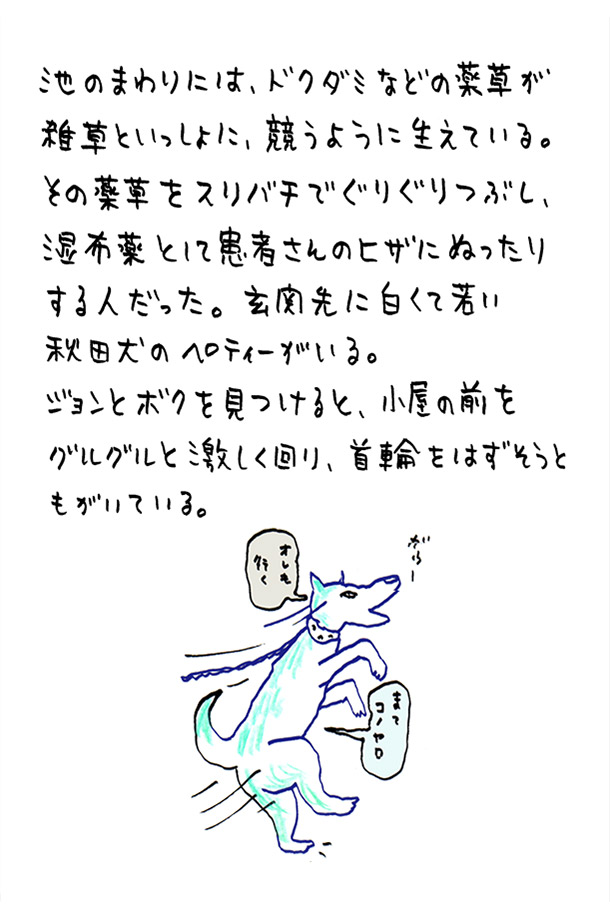 池のまわりには、ドクダミなどの薬草が
雑草といっしょに、競うように生えている。
その薬草をスリバチでぐりぐりつぶし、
湿布薬として患者さんのヒザにぬったり
する人だった。玄関先に白くて若い
秋田犬のペロティーがいる。
ジョンとボクを見つけると、小屋の前を
グルグルと激しく回り、首輪をはずそうと
もがいている。
オレも
行く
まて
コノヤロ